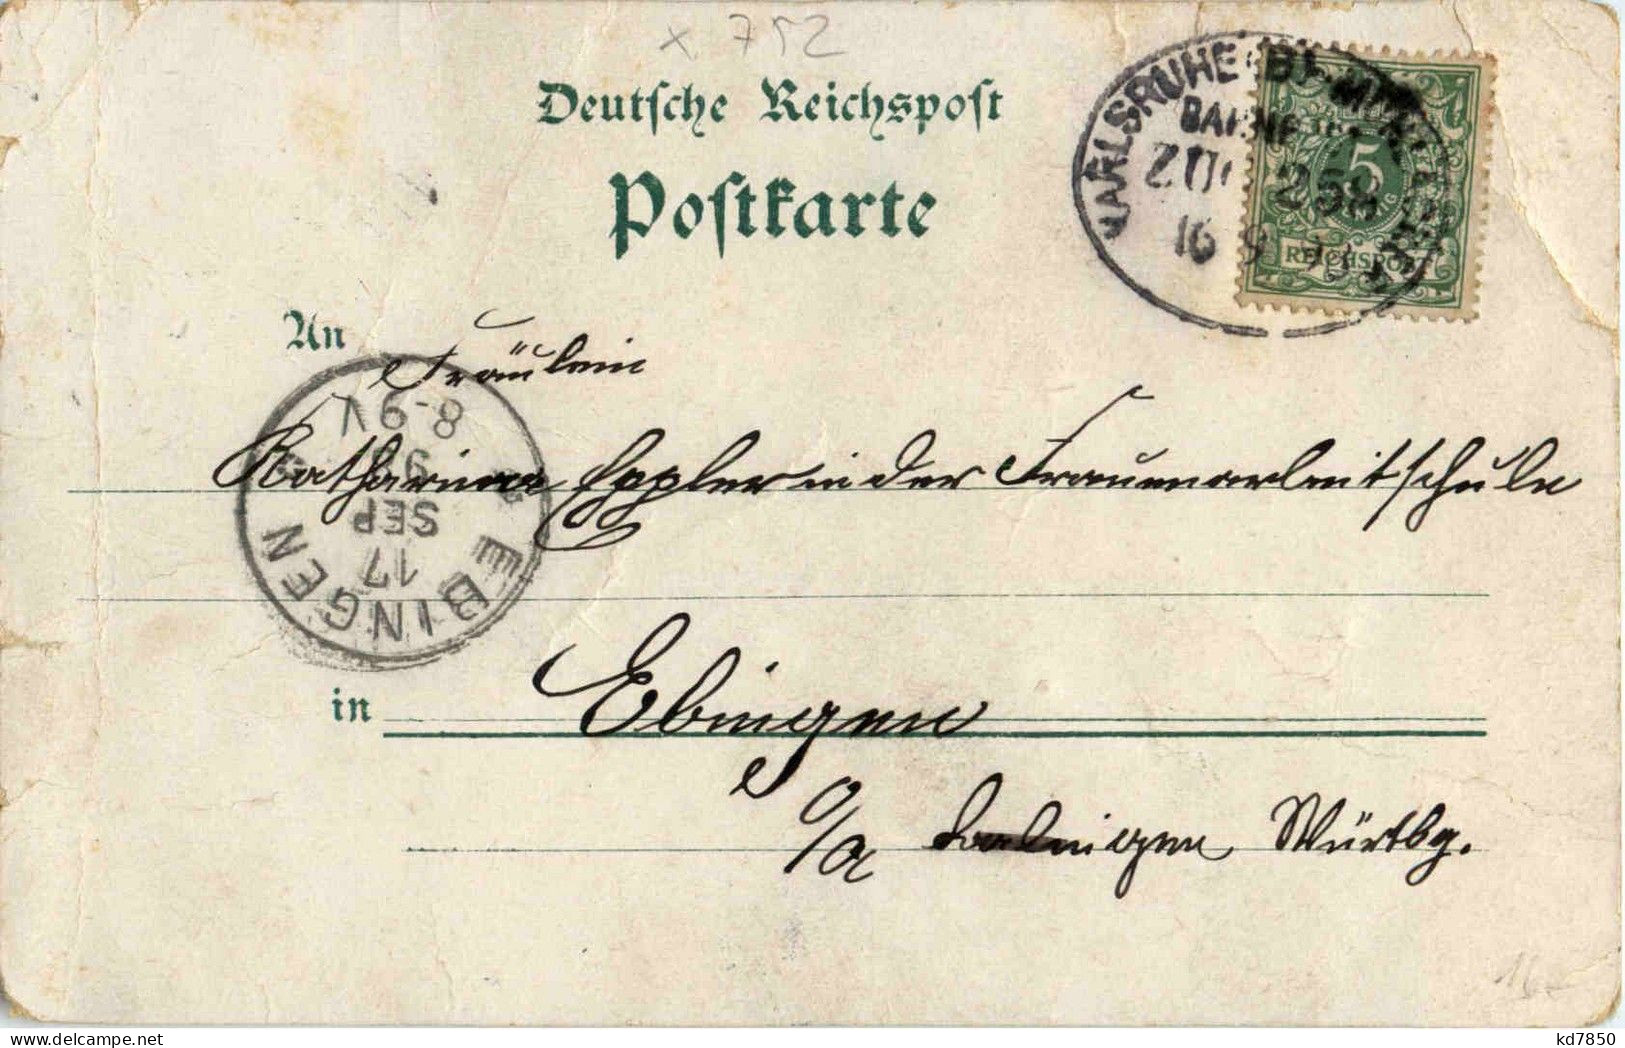 x 752
Deutsche Reichspost
Postkarte
KARLSRUHE (B)
BAHNPOST
ZUG 258
16 9
5
REICHSPOST
An
Fräulein
Katharina Eppler in der Frauenarbeitschule
8-9V
SEP
17
EBINGEN
in Ebingen
O/A Balingen Württbg.
kd7850